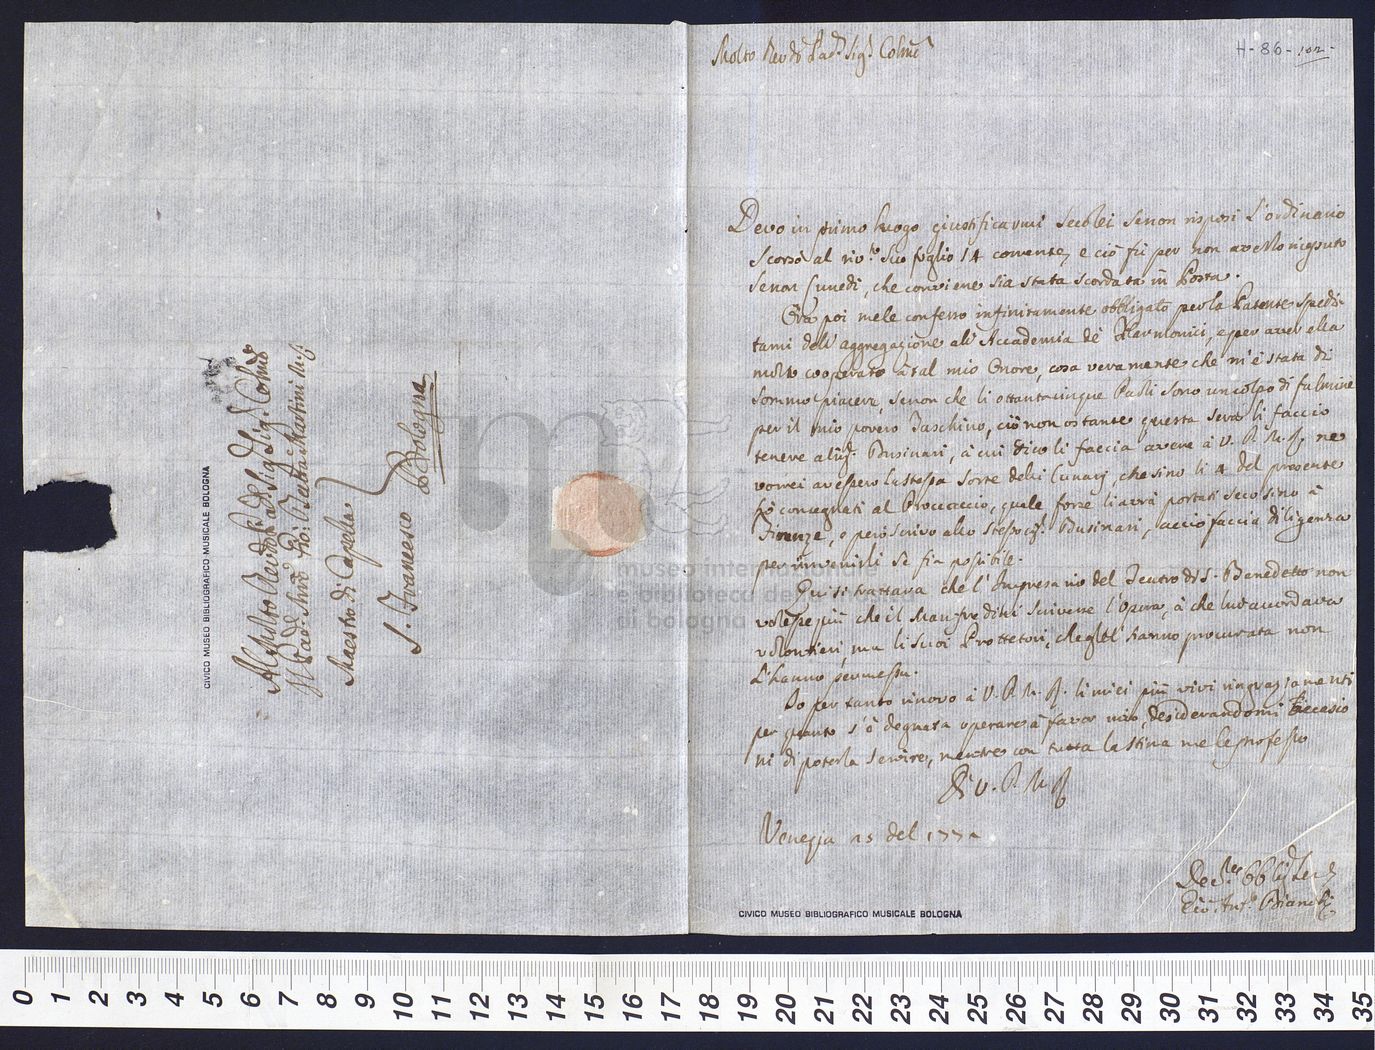 Molto Revdo Pad.e Sig.r Colmo
H-86-102-
Devo in primo luogo giustificarmi seco lei se non risposi l'ordinario
scorso al riv.to suo foglio 14 corrente, e ciò fù per non averlo ricevuto
se non Lunedi, che conviene sia stata scordata in Posta.
Ora poi me le confesso infinitamente obbligato per la Patente spedi-
tami dell'aggregazione all'Accademia de Filarmonici, e per aver ella
molto cooperato à tal mio Onore, cosa veramente che m'è stata di
sommo piacere, se non che li ottantacinque Paoli sono un colpo di fulmine
per il mio povero Taschino, ciò non ostante questa sera li faccio
tenere al Sig.r Businari, à cui dico li faccia avere à V. P. M. R. ne
vorrei avessero la stessa sorte delli Lunarj, che sino li 4 del presente
hò consegnati al Procaccio, quale forse li avrà portati seco sino à
Firenze, e però scrivo allo stesso Sig.r Businari, acciò faccia diligenza
per rinvenirli sè fia possibile.
Qui si trattava che l'Impresario del Teatro di S. Benedetto non
volesse più che il Manfredini scrivesse l'Opera, à che lui accordava
volontieri, ma li suoi Prottettori, che gliel' hanno procurata non
l'hanno permesso.
Io per tanto rinovo à V. P. M. R. li miei più vivi ringraziamenti
per quanto s'è degnata operare à favor mio, desiderandomi l'occasio
ni di poterla servire, mentre con tutta la stima me le professo
Di V. P. M. R.
Venezia 25 del 1772
Dev.mo Obblig.mo Ser.e
Gio: Ant.o Bianchi
CIVICO MUSEO BIBLIOGRAFICO MUSICALE BOLOGNA
Al Molto Revdo Pad.e Sig.r Sig.r Colmo
Il Pad.e Giō: Batta Martini
Maestro di Capella
S. Francesco
Bologna
CIVICO MUSEO BIBLIOGRAFICO MUSICALE BOLOGNA
museo internazionale
e biblioteca della musica
di bologna
0 1 2 3 4 5 6 7 8 9 10 11 12 13 14 15 16 17 18 19 20 21 22 23 24 25 26 27 28 29 30 31 32 33 34 35